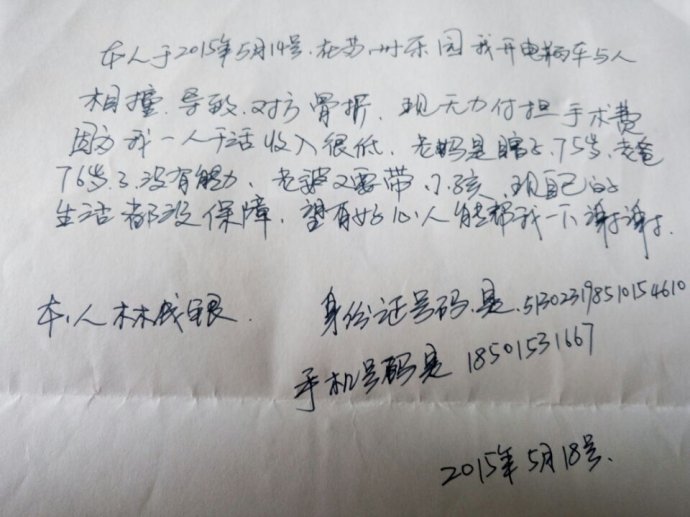 本人于2015年5月14号.在苏州乐园我开电瓶车与人
相撞.导致.对方骨折.现无力付担手术费
因为我一人干活收入很低.老妈是瞎子.75岁.老爸
76岁了.没有能力.老婆又要带小孩.现自己的
生活都没保障.望有好心人能帮我一下谢谢.
本人林钱银.
身份证号码.是.513023198510154610
手机号码是 18501531667
2015年5月18号.